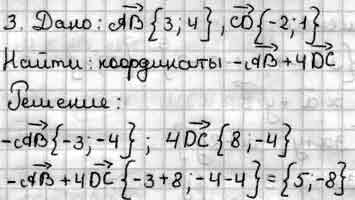 3. Дано: AB⃗ {3; 4}, CD⃗ {-2; 1}
Найти: координаты -AB⃗ + 4DC⃗
Решение:
-AB⃗ {-3; -4}; 4DC⃗ {8; -4}
-AB⃗ + 4DC⃗ {-3+8; -4-4} = {5; -8}